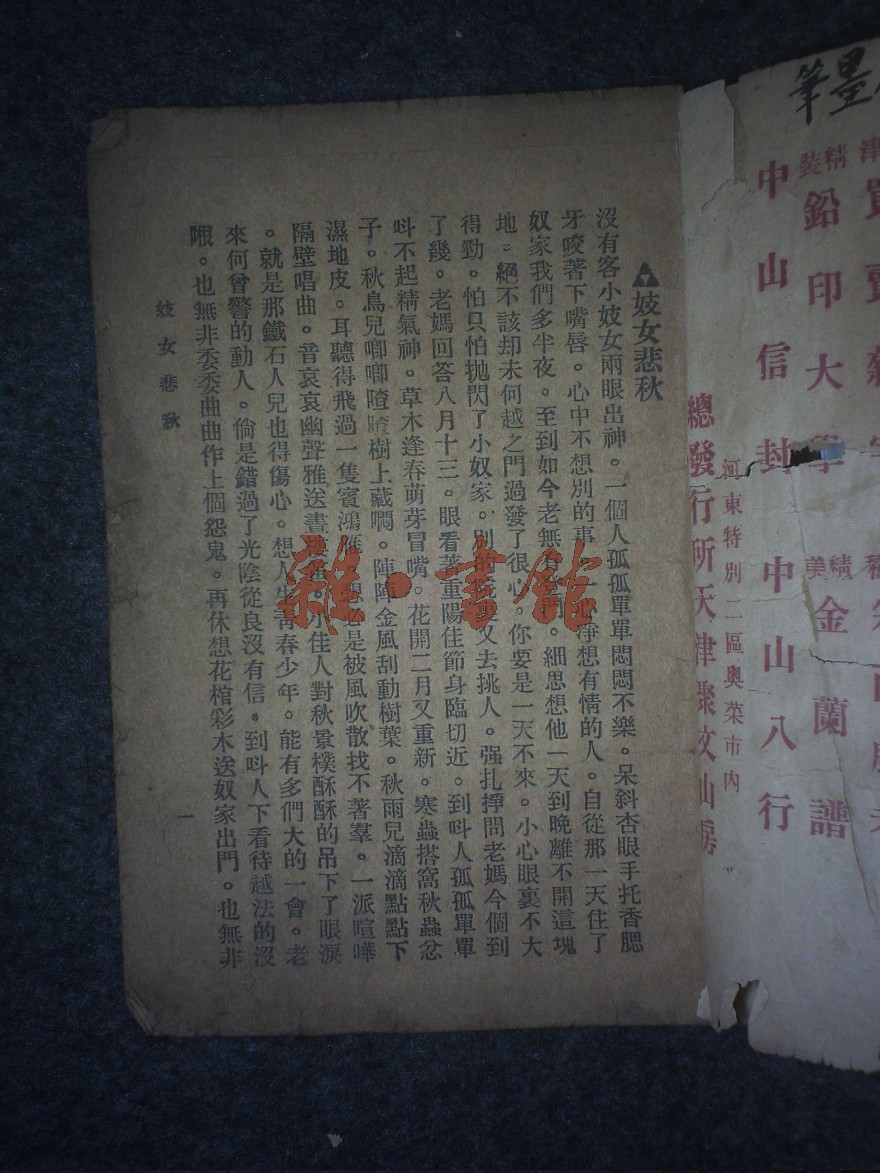 筆墨
精裝鉛印大學
精美金蘭譜
中山信封
中山八行
河東特別二區奧菜市內
總發行所天津聚文山房
▲妓女悲秋
沒有客小妓女兩眼出神。一個人孤孤單單悶悶不樂。呆斜杏眼手托香腮
牙咬著下嘴唇。心中不想別的事。一心淨想有情的人。自從那一天住了
奴家我們多半夜。至到如今老無有登門。細思想他一天到晚離不開這塊
地。絕不該却未何越之門過發了很心。你要是一天不來。小心眼裏不大
得勁。怕只怕拋閃了小奴家。別的 又去挑人。强扎掙問老媽今個到
了幾。老媽回答八月十三。眼看著重陽佳節身臨切近。到呌人孤孤單單
呌不起精氣神。草木逢春萌芽冒嘴。花開二月又重新。寒蟲搭窩秋蟲忿
子。秋鳥兒唧唧喳喳樹上藏 。陣陣金風刮動樹葉。秋雨兒滴滴點點下
濕地皮。耳聽得飛過一隻賓鴻雁。想必是被風吹散找不著羣。一派喧嘩
隔壁唱曲。音哀哀幽聲雅送 。小佳人對秋景樸酥酥的吊下了眼淚
。就是那鐵石人兒也得傷心。想人生靑春少年。能有多們大的一會。老
來何曾警的動人。倘是錯過了光陰從良沒有信。到呌人下看待越法的沒
限。也無非委委曲曲作上個怨鬼。再休想花棺彩木送奴家出門。也無非
妓女悲秋
一
雜·書館